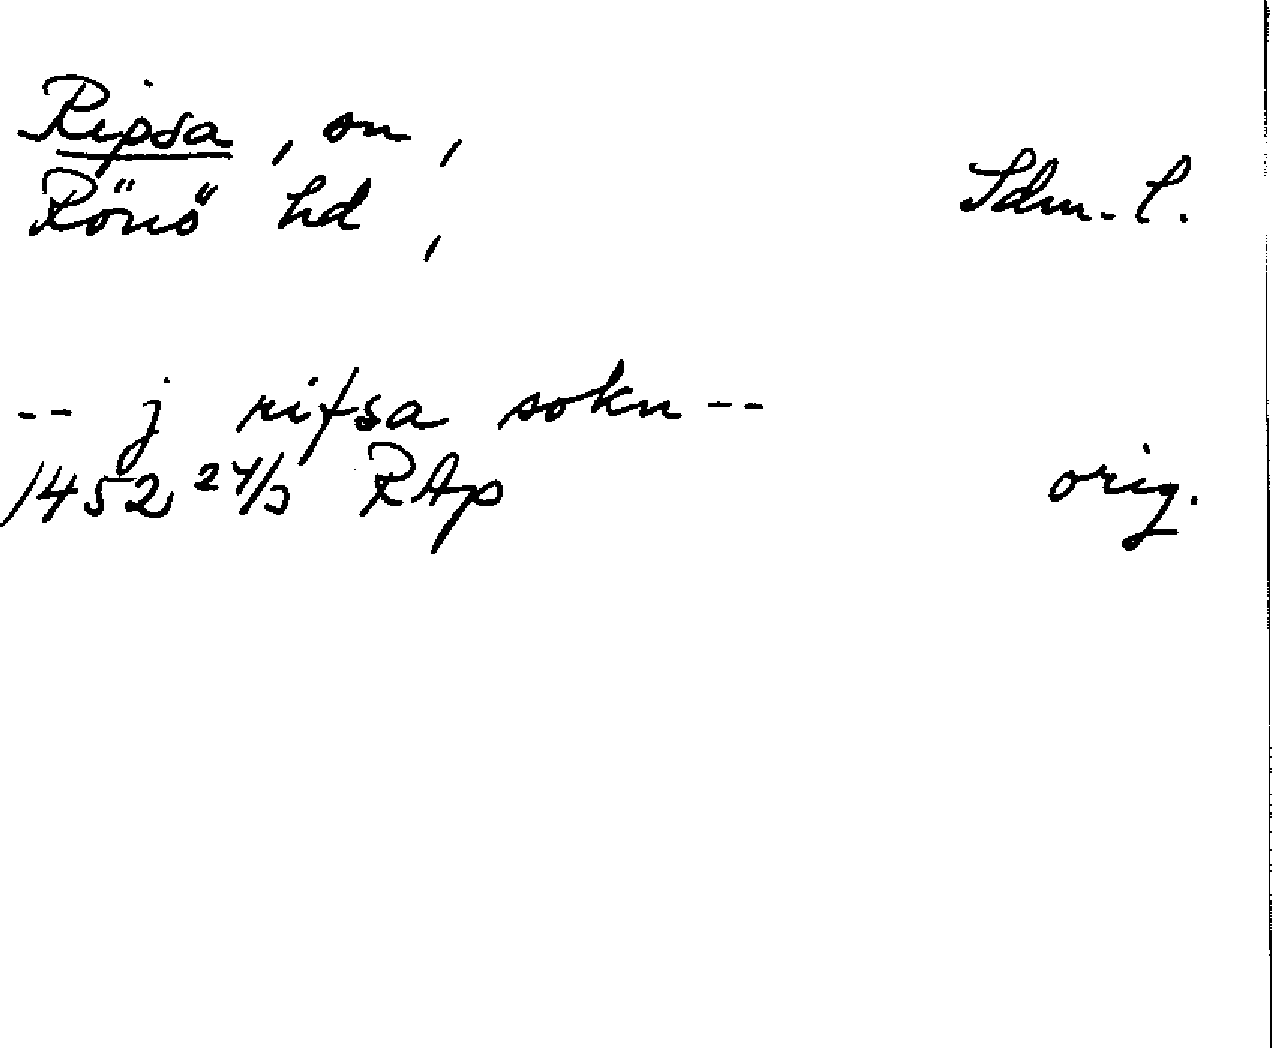 Ripsa, sn,
Rönö hd,
Sdm. l.
-- j rifsa sokn --
1452 24/3 RAp
orig.